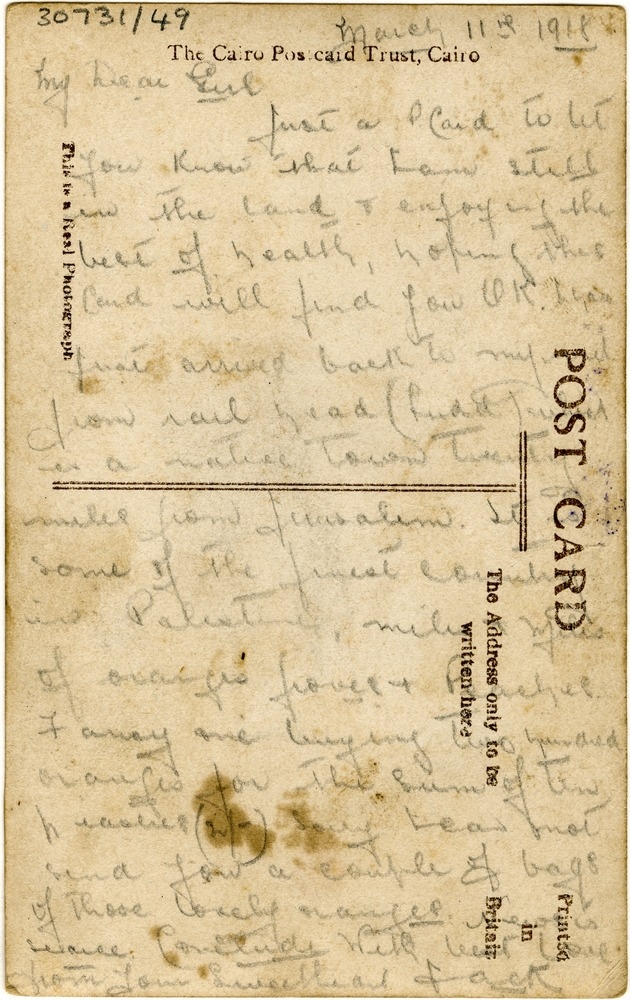 30731/49
March 11th 1918
The Cairo Postcard Trust, Cairo
My Dear Girl
Just a PCard to let
you know that I am still
in the land & enjoying the
best of health, hoping this
Card will find you OK. I have
just arrived back to my unit
from rail head (Ludd) which
is a native town twenty
miles from Jerusalem. It
some of the finest country
in Palestine, miles & miles
of oranges groves & Peaches.
Fancy me buying two hundred
oranges for the sum of ten
piastres (2/-) Sorry I can not
send you a couple of bags
of those lovely oranges.
Conclude With best love
from Your Sweetheart Jack
This is a Real Photograph
POST CARD
The Address only to be
written here
Printed
in
Britain